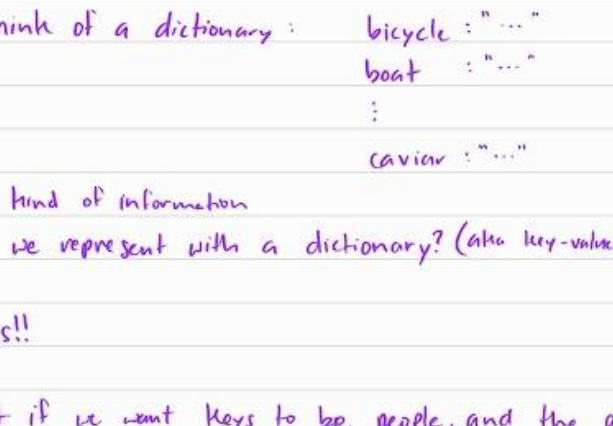 hink of a dictionary : bicycle : "..."
boat : "..."
⋮
caviar : "..."
kind of information
we represent with a dictionary? (aka key-value
s!!
if we want keys to be people, and the